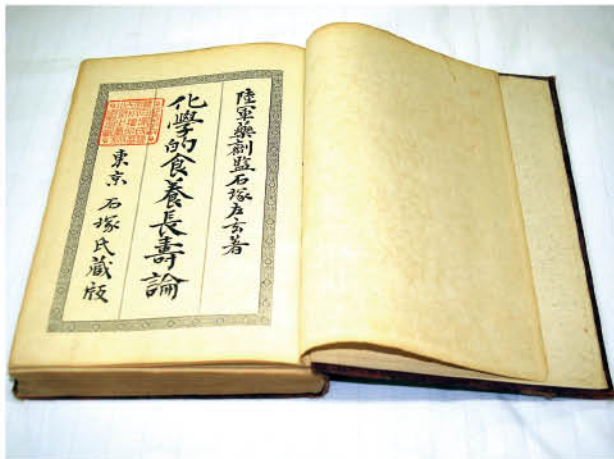 陸軍藥劑監石塚左玄著
化學的食養長壽論
東京 石塚氏蔵版